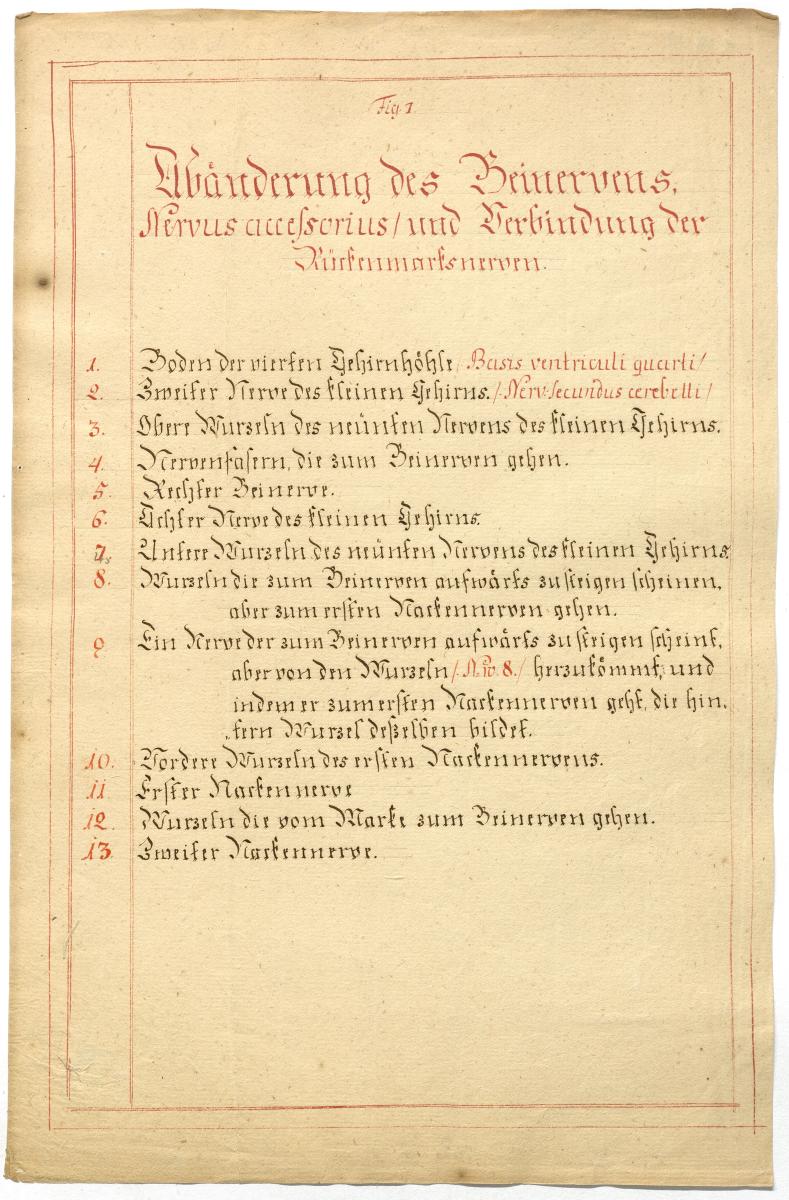 Fig. 1
Abänderung des Beinervens,
Nervus accessorius / und Verbindung der
Rückenmarksnerven.
1. Boden der vierten Gehirnhöhle / Basis ventriculi quarti /
2. Zweiter Nerve des kleinen Gehirns. / Nerv. secundus cerebelli /
3. Obere Wurzeln des neünten Nervens des kleinen Gehirns.
4. Nervenfasern, die zum Beinerven gehen.
5. Rechter Beinerve.
6. Achter Nerve des kleinen Gehirns.
7. Untere Wurzeln des neünten Nervens des kleinen Gehirns.
8. Wurzeln die zum Beinerven aufwärts zu steigen scheinen,
aber zum ersten Nackennerven gehen.
9 Ein Nerve der zum Beinerven aufwärts zu steigen scheint,
aber von den Wurzeln / Nro. 8. / herzukömmt, und
indem er zum ersten Nackennerven geht, die hin-
tern Wurzel deßelben bildet.
10. Vordere Wurzeln des ersten Nackennervens.
11 Erster Nackennerve
12. Wurzeln die vom Marke zum Beinerven gehen.
13. Zweiter Nackennerve.